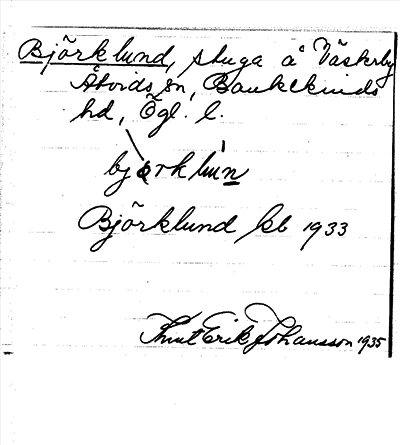 Björklund, stuga å Västerby
Åtvids sn, Bankekinds
hd, Ögl. l.
bjørkluǹn
Björklund kb 1933
Knut Erik Johansson 1935